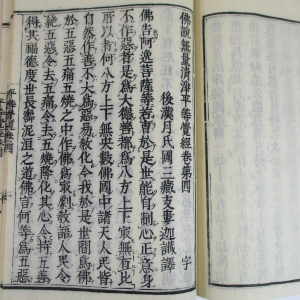 佛說無量清淨平等覺經卷第四　字
後漢月氏國三藏支婁迦讖譯
佛告阿逸菩薩等若曹於是世能自制心正意身
不作惡者是爲大德善都爲八方上下最無有比
所以者何八方上下無央數佛國中諸天人民皆
自然作善不大爲惡易教化今我於是世間爲佛
於五惡五痛五燒之中作佛爲最劇教語人民令
絕五惡令去五痛令去五燒降化其心令持五善
得其福德度世長壽泥洹之道佛言何等爲五